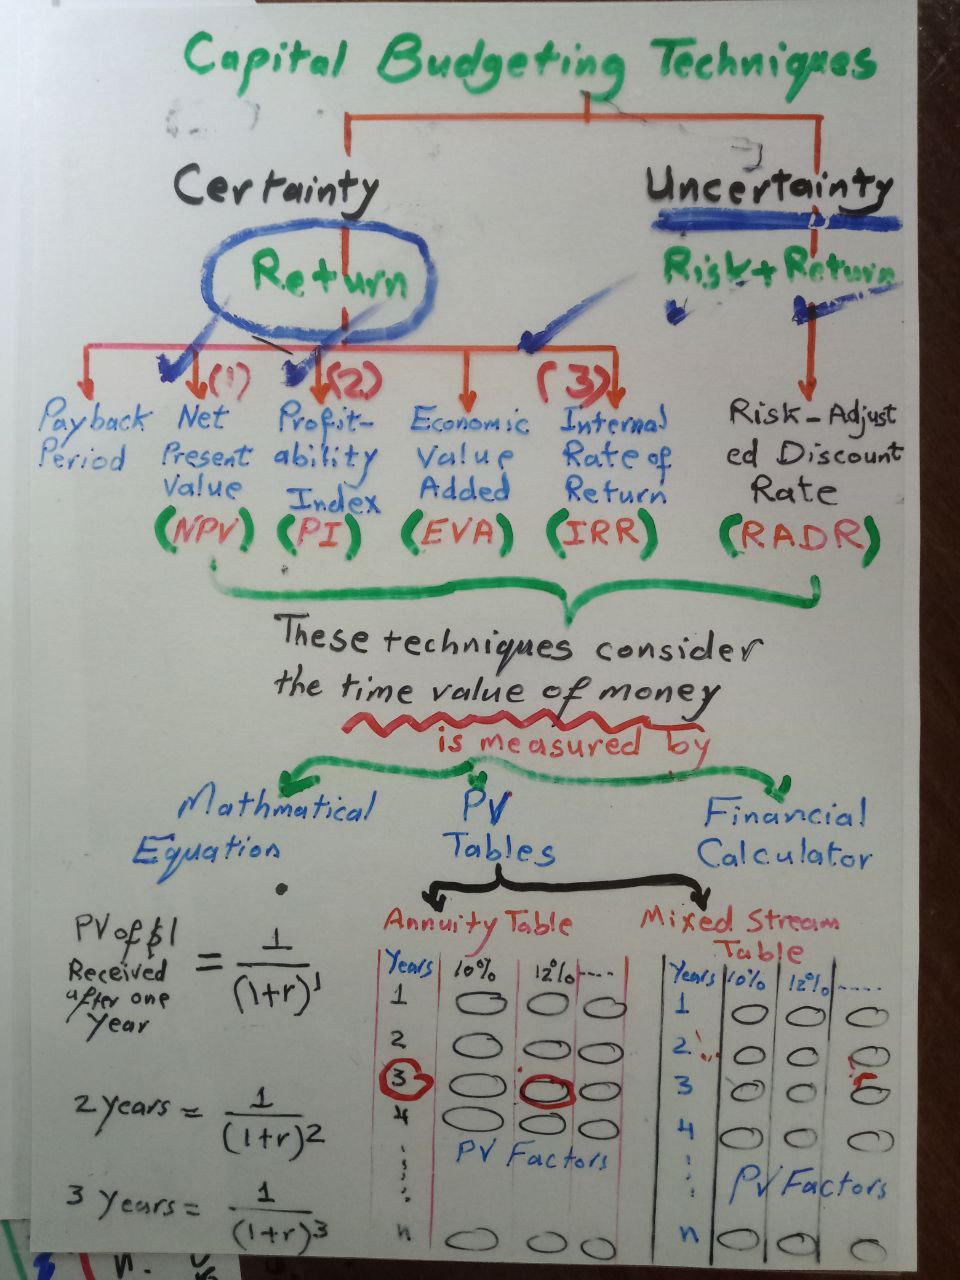 Capital Budgeting Techniques
Certainty
Uncertainty
Return
Risk + Return
(1)
(2)
(3)
Payback
Period
Net
Present
Value
(NPV)
Profit-
ability
Index
(PI)
Economic
Value
Added
(EVA)
Internal
Rate of
Return
(IRR)
Risk-Adjust
ed Discount
Rate
(RADR)
These techniques consider
the time value of money
is measured by
Mathmatical
Equation
PV
Tables
Financial
Calculator
PV of $1
Received
after one
year
= 1/(1+r)^1
2 years = 1/(1+r)^2
3 years = 1/(1+r)^3
Annuity Table
Years 10% 12% ....
1
2
3
4
PV Factors
n
Mixed Stream
Table
Years 10% 12% .....
1
2
3
4
PV Factors
n
n.